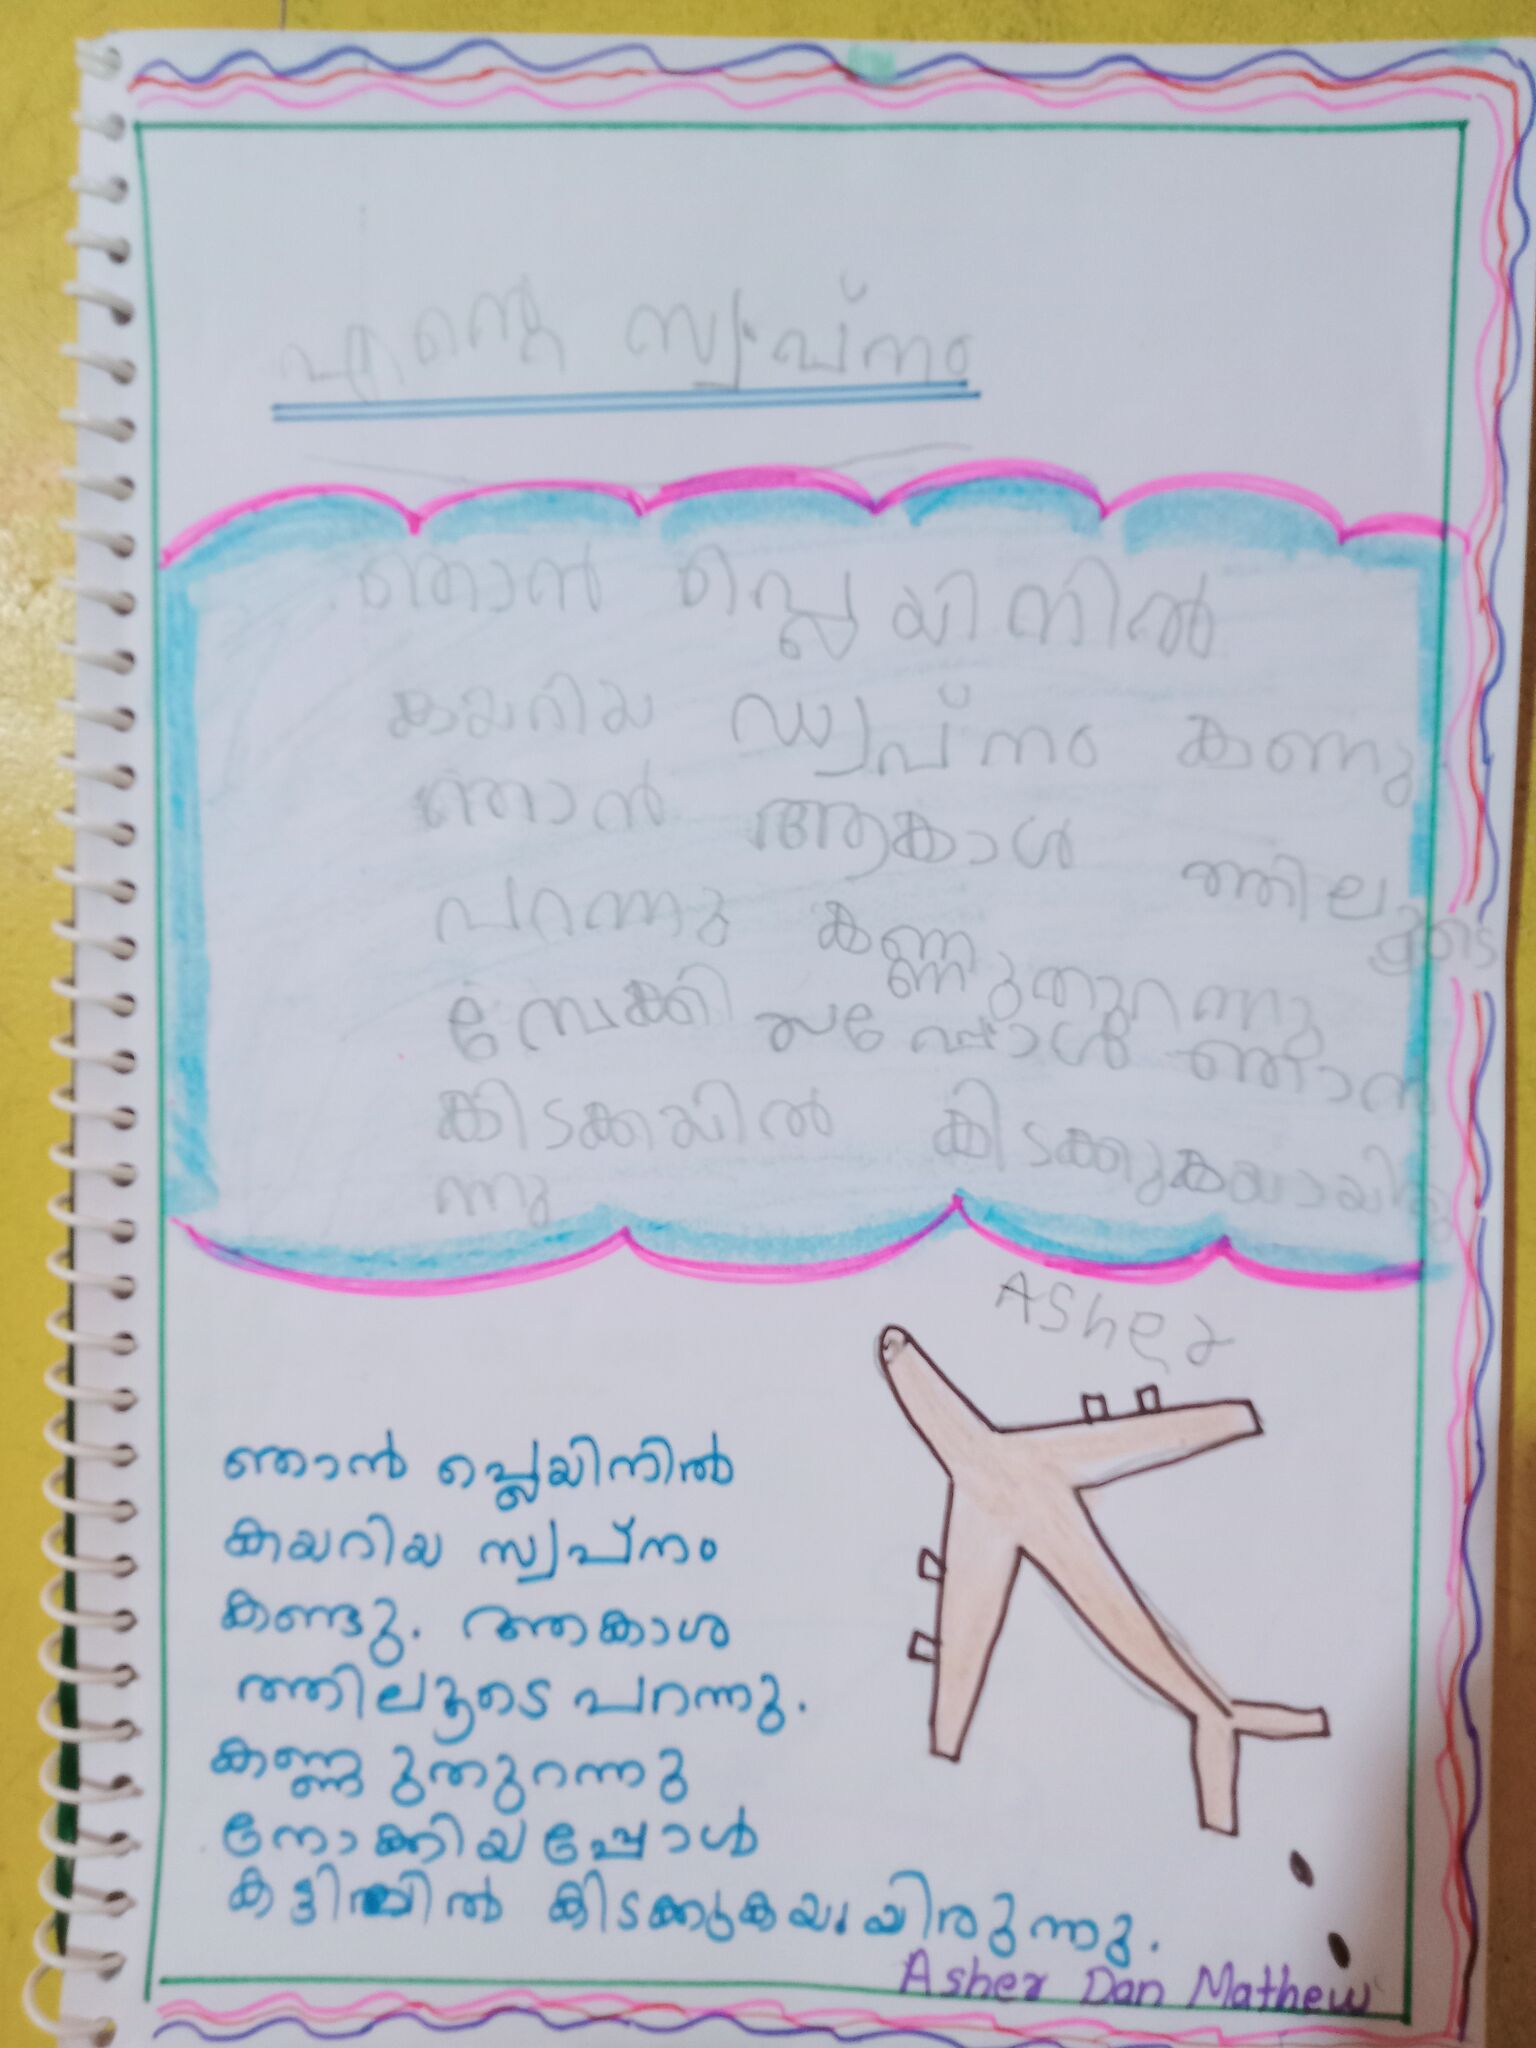 എന്റെ സ്വപ്നം
ഞാൻ പ്ലെയിനിൽ
കയറിയ സ്വപ്നം കണ്ണു
ഞാൻ ആകാശ ത്തില
ൂടെ
പറന്നു കണ്ണുതുറന്നു
ഞാൻ
കിടക്കയിൽ കിടക്കുകയായിരു
ന്നു
Asher
ഞാൻ പ്ലെയിനിൽ
കയറിയ സ്വപ്നം
കണ്ടു. ആകാശ
ത്തിലൂടെ പറന്നു.
കണ്ണുതുറന്നു
നോക്കിയപ്പോൾ
കട്ടിലിൽ കിടക്കുകയായിരുന്നു.
Asher Dan Mathew